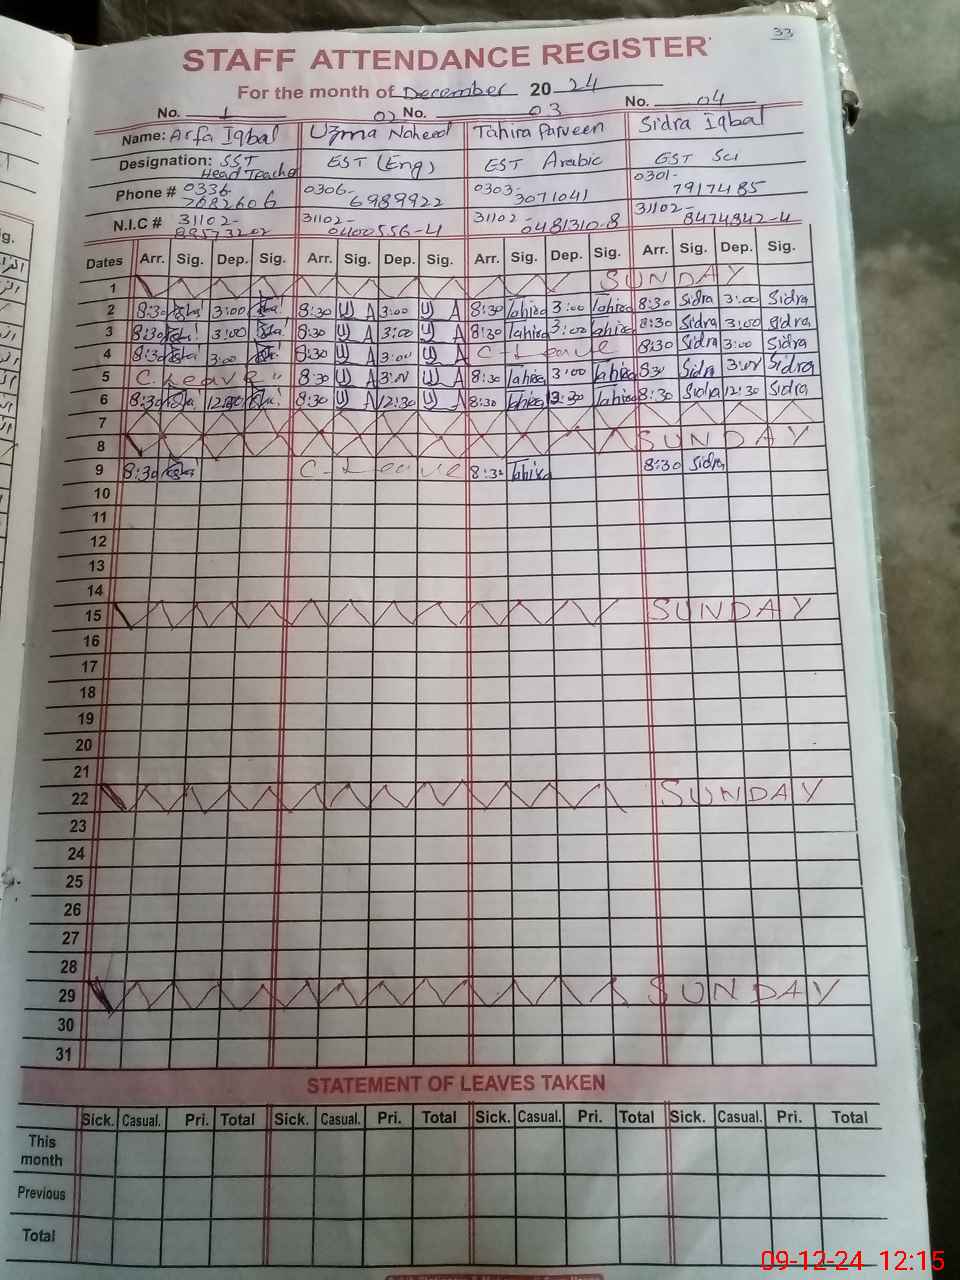 33
STAFF ATTENDANCE REGISTER
For the month of December 20 24
No. 1 02 No. 03 No. 04
Name: Arfa Iqbal Uzma Naheed Tahira Parveen Sidra Iqbal
Designation: SST Head Teacher EST (Eng) EST Arabic EST Sci
Phone # 0336- 7682606 0306- 6989922 0303- 3071041 0301- 7917485
N.I.C # 31102- 31102- 0400556-4 31102- 0481310-8 31102- 8474842-4
Dates Arr. Sig. Dep. Sig. Arr. Sig. Dep. Sig. Arr. Sig. Dep. Sig. Arr. Sig. Dep. Sig.
1 SUNDAY
2 8:30 3:00 8:30 3:00 8:30 Tahira 3:00 Tahira 8:30 Sidra 3:00 Sidra
3 8:30 3:00 8:30 3:00 8:30 Tahira 3:00 Tahira 8:30 Sidra 3:00 Sidra
4 8:30 3:00 8:30 3:00 C-Leave 8:30 Sidra 3:00 Sidra
5 C. Leave 8:30 3:00 8:30 Tahira 3:00 Tahira 8:30 Sidra 3:00 Sidra
6 8:30 12:30 8:30 12:30 8:30 Tahira 12:30 Tahira 8:30 Sidra 12:30 Sidra
7
8 SUNDAY
9 8:30 C-Leave 8:30 Tahira 8:30 Sidra
10
11
12
13
14
15 SUNDAY
16
17
18
19
20
21
22 SUNDAY
23
24
25
26
27
28
29 SUNDAY
30
31
STATEMENT OF LEAVES TAKEN
Sick. Casual. Pri. Total Sick. Casual. Pri. Total Sick. Casual. Pri. Total Sick. Casual. Pri. Total
This month
Previous
Total
09-12-24 12:15